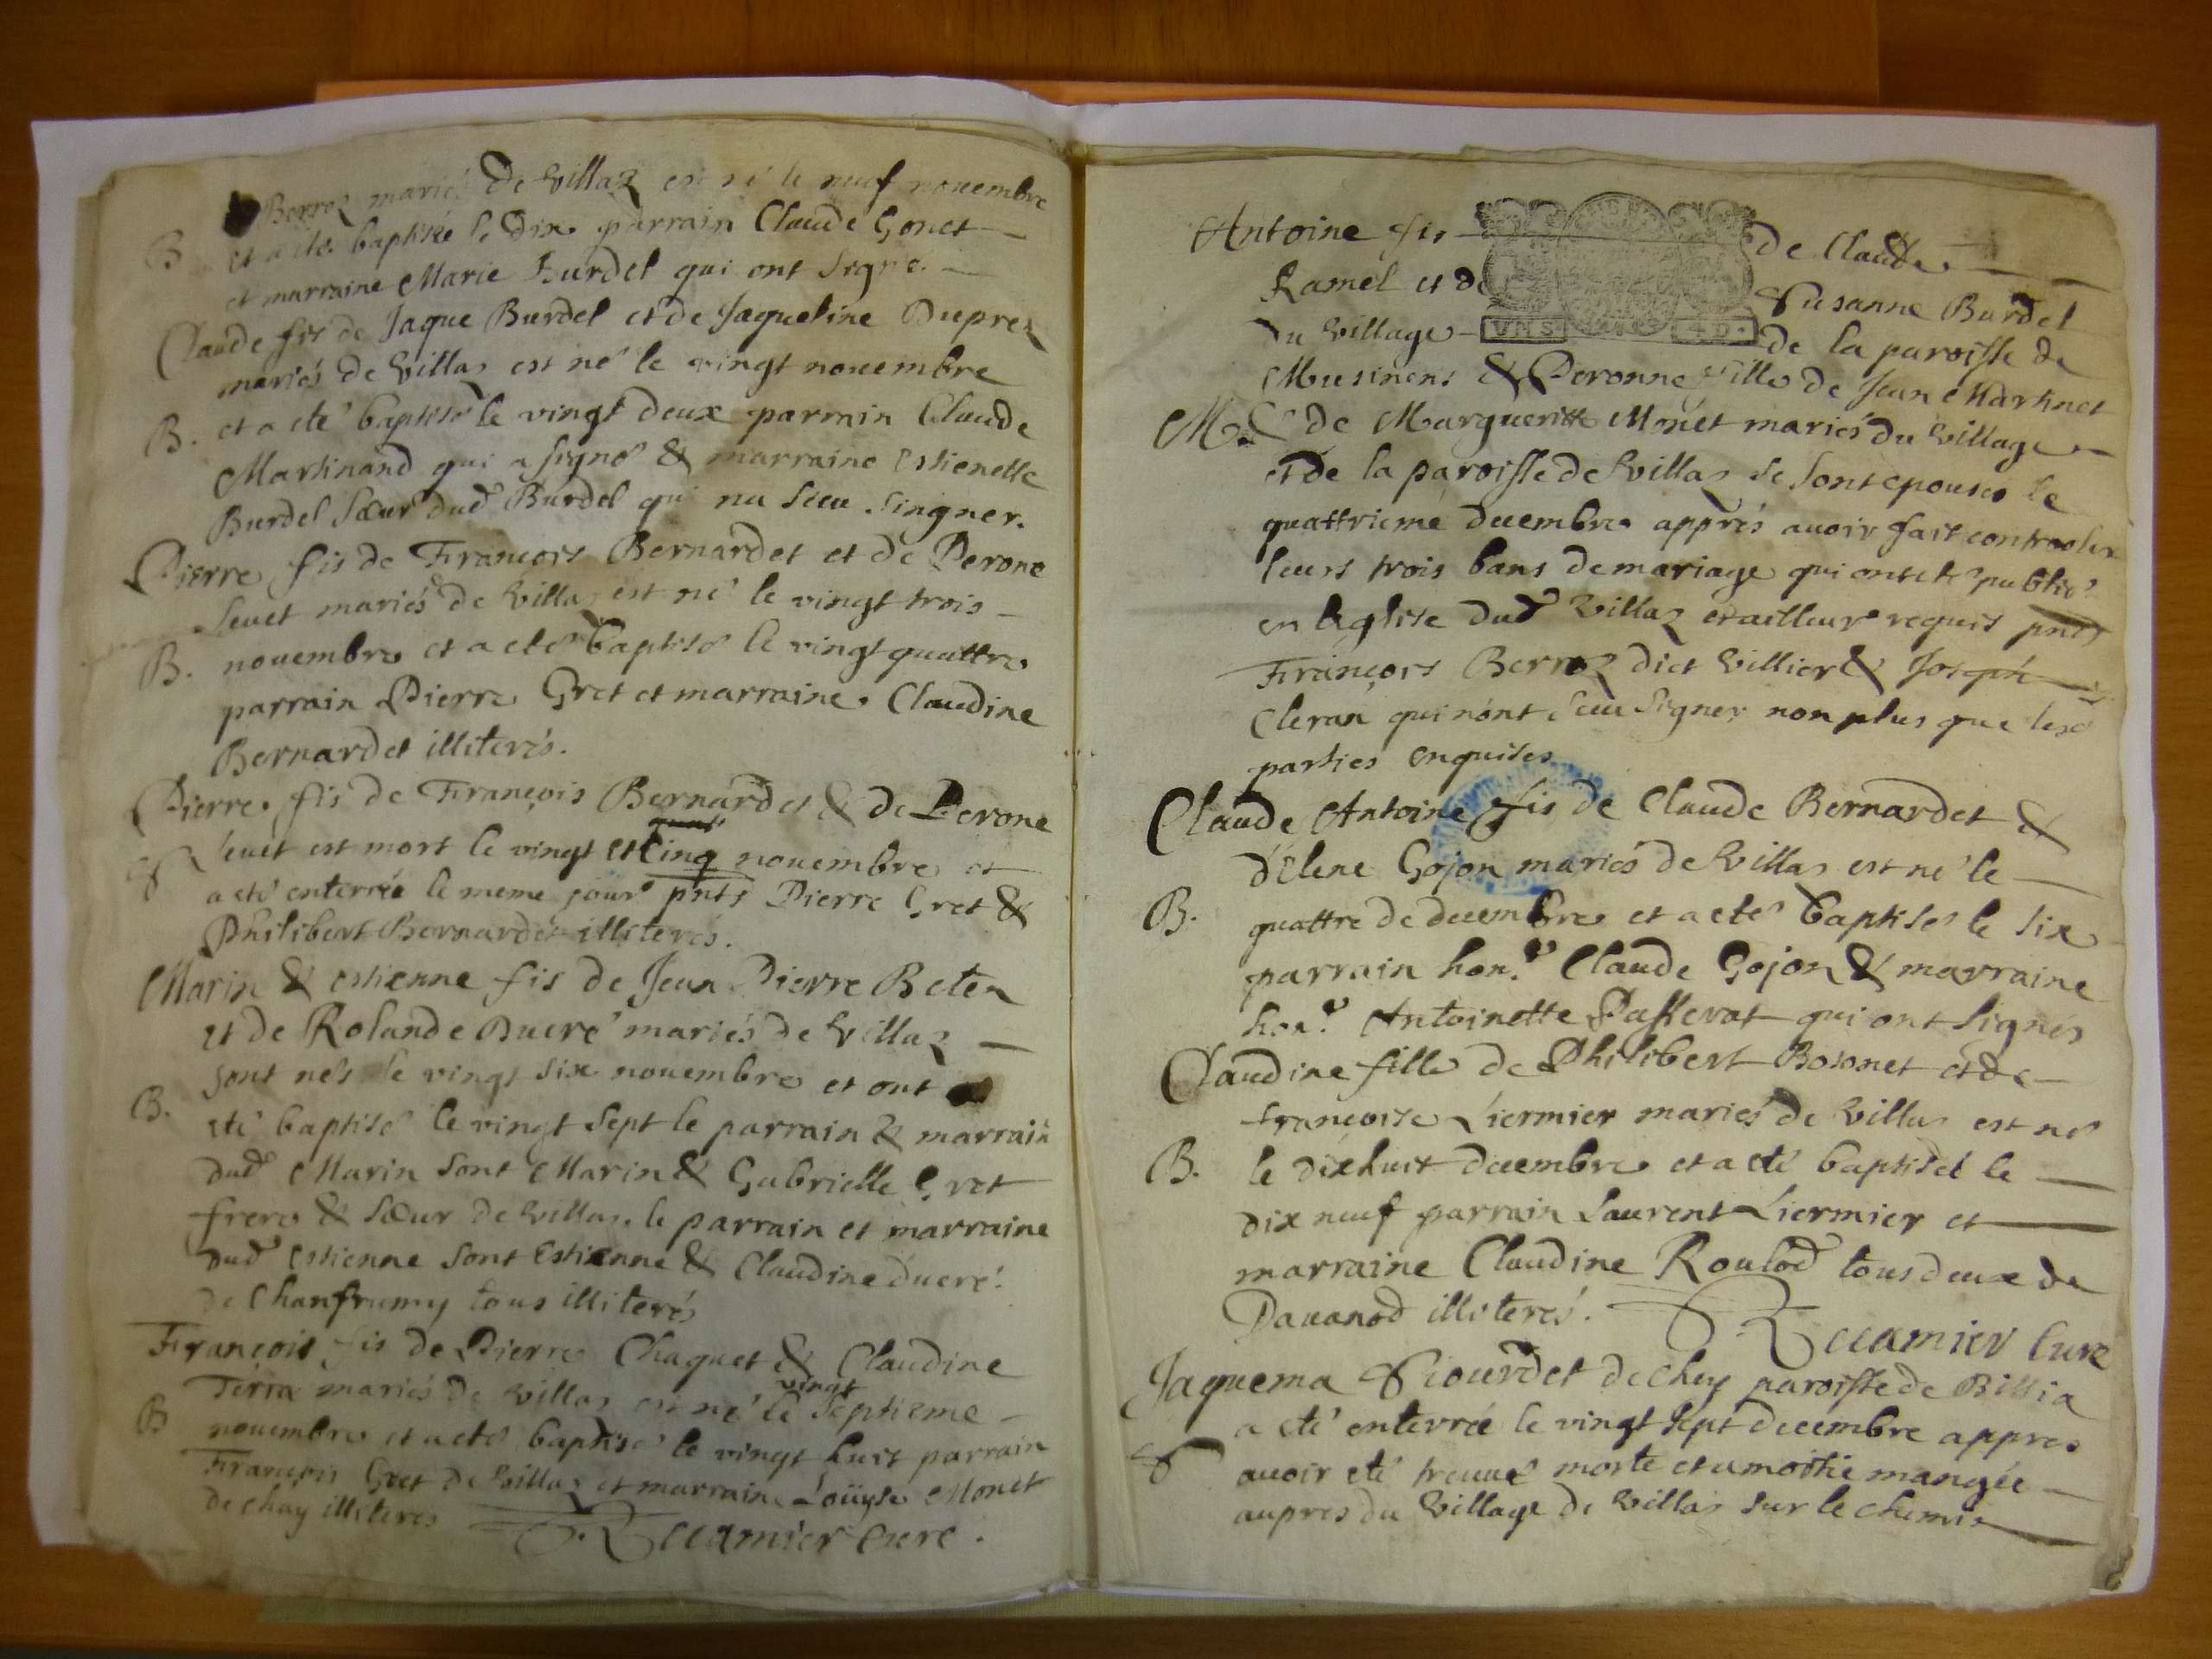 Berroz mariés de Villaz est né le neuf nouembre
B et a été baptisé le dix parrain Claude Gonet
et marraine Marie Burdel qui ont signé.
Claude fis de Jaque Burdel et de Jaqueline Duprez
mariés de Villaz est né le vingt nouembre
B. et a eté baptisé le vingt deux parrain Claude
Martinand qui a signé & marraine Estienette
Burdel sœur dud Burdel qui na sceu singner.
Pierre fis de François Bernardet et de Perone
Leuet mariés de Villaz est né le vingt trois
B. nouembre et a eté baptisé le vingt quattre
parrain Pierre Gret et marraine Claudine
Bernardet illiterés.
Pierre fis de François Bernardet & de Perone
S leuet est mort le vingt et cinq nouembre et
a eté enterrée le meme jour pnts Pierre Gret &
Philibert Bernardet illiterés.
Marin & estienne fis de Jean Pierre Beten
et de Rolande Ducré mariés de Villaz
sont nés le vingt six nouembre et ont
B. eté baptisé le vingt sept le parrain & marrain
dud Marin sont Marin & Gabrielle Gret
frere & sœur de Villaz le parrain et marraine
dud estienne sont Estienne & Claudine ducré
de Chanfrumy tous illiterés
François fis de Pierre Chaquet & Claudine
mariés de Villaz est né le vingt septieme
B nouembre et a eté baptisé le vingt huit parrain
François Gret de Villaz et marraine Loüyse Monet
de chay illiteres Recamier Curé.
Antoine fis de Claude
Ramel et de Susanne Burdel
UN S 4 D.
du Village de la paroisse de
Musinens & Peronne fille de Jean Martinet
M. & de Margueritte Monet mariés du Village
et de la paroisse de Villaz se sont epousés le
quattrieme decembre apprés auoir fait controoler
leurs trois bans de mariage qui ont eté publié
en leglise dud Villaz et ailleurs requis pnts
François Berroz dict Villier & Joseph
Cleran qui n'ont sceu signer non plus que les
parties enquises
Claude Antoine fis de Claude Bernardet &
d'Elene Gojon mariés de Villaz est né le
B. quattre de decembre et a eté baptisé le six
parrain hon.e Claude Gojon & marraine
hon.e Antoinette Passerat qui ont signés
Claudine fille de Philibert Bosonet et de
françoise Liermier mariés de Villaz est né
B. le dixhuit decembre et a eté baptisé le
dix neuf parrain Laurent Liermier et
marraine Claudine Roulod tous deux de
Dauanod illiterés. Recamier Curé
Jaquema Siourdet de chey paroisse de Billia
a eté enterrée le vingt sept decembre appres
S auoir eté treuué morte et a moitie mangée
aupres du Village de Villaz sur le chemin